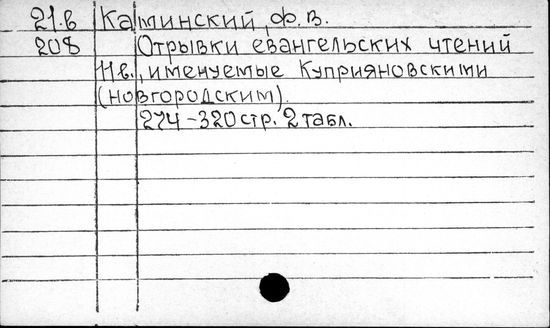 21.в Каминский, Ф.В.
208 Отрывки евангельских чтений
11 в., именуемые Куприяновскими
(новгородским).
274-320 стр. 2 табл.